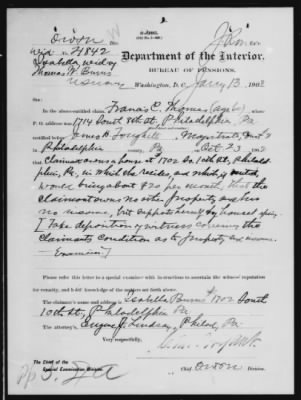 Department of the Interior,
BUREAU OF PENSIONS,
Wid 4842
Isabella, widow
Thomas W. Burns
U.S. Navy
Washington, D.C., Jany 13, 190
Sir:
In the above-entitled claim Francis C. Thomas (age 61) whose
P. O. address was 1714 South 8th St, Philadelphia, Pa
certified before James H. Toughill, Magistrate, Court 2
Philadelphia county, Pa Oct 23, 190
that
Claimant owns a house at 1702 So. 10th St, Philadel-
phia, Pa, in which she resides, and which if rented,
would bring about $20 per month, that the
claimant owns no other property and has
no income, but supports herself by house
[Take deposition of witness
Claimants Condition as to property and income.
Examiner]
Please refer this letter to a special examiner with instructions to ascertain the witness' reputation
for veracity, and his knowledge of the matters set forth above.
The claimant's name and address is Isabella Burns #1702 South
10th St, Philadelphia Pa
The attorney's, Eugene J. Lindsay, Philad, Pa.
Very respectfully,
The Chief of the
Special Examination Division.
Chief, Division.